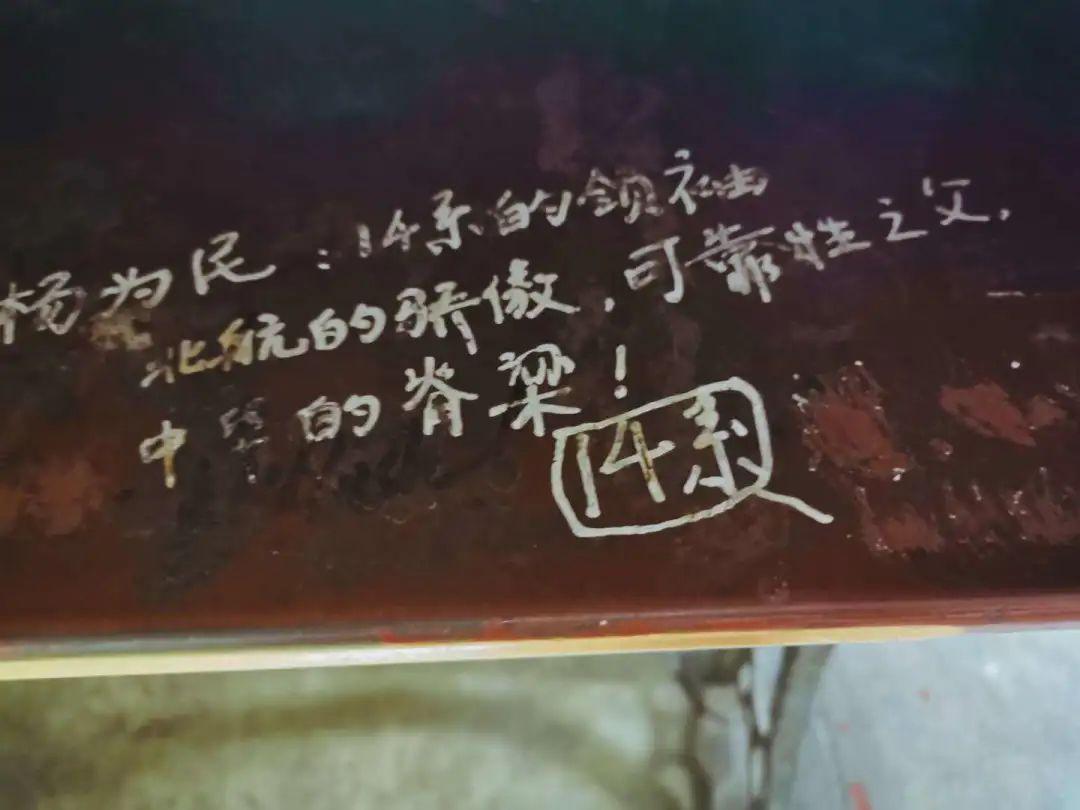 杨为民:14系的领袖
北航的骄傲,可靠性之父,
中华的脊梁!
14系